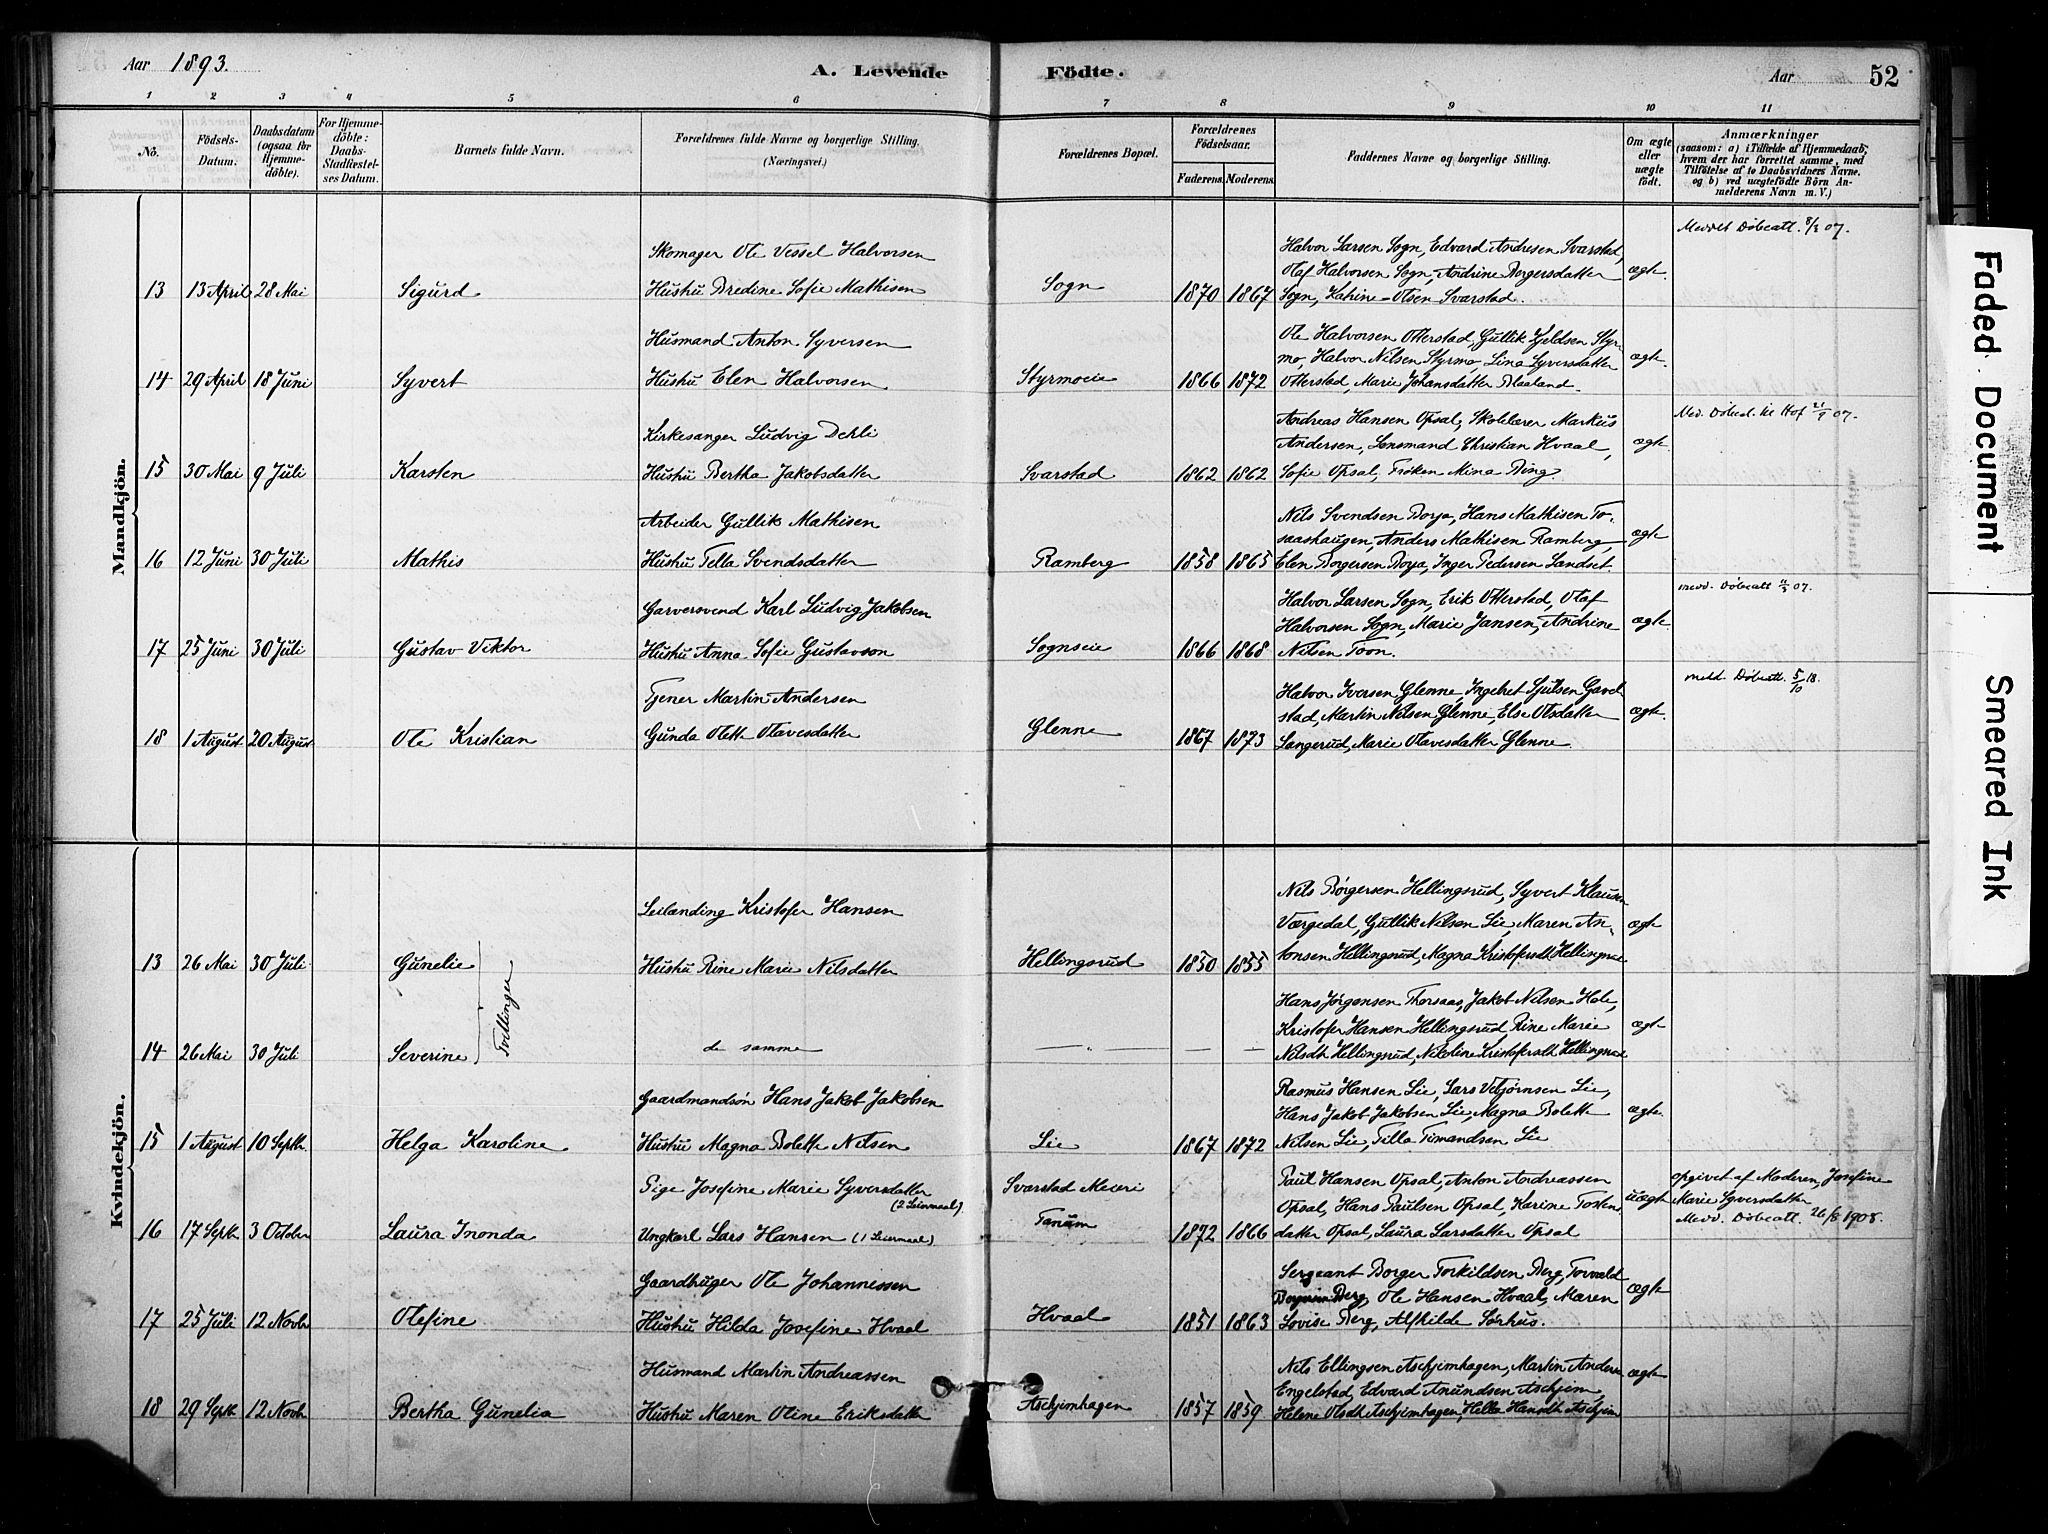 Aar 1893.
A. Levende Födte.
Aar
52
1 2 3 4 5 6 7 8 9 10 11
No.
Födsels-Datum.
Daabsdatum (ogsaa for Hjemme-döbte).
For Hjemme-döbte: Daabs-Stadfæstel-ses Datum.
Barnets fulde Navn.
Forældrenes fulde Navne og borgerlige Stilling. (Næringsvei.)
Forældrenes Bopæl.
Forældrenes Födselsaar.
Faderens. Moderens.
Faddernes Navne og borgerlige Stilling.
Om ægte eller uægte födt.
Anmærkninger
(saasom: a) i Tilfælde af Hjemmedaab, hvem der har forrettet samme, med Tilföielse af to Daabsvidners Navne. og b) ved uægtefödte Börn An-melderens Navn m. V.)
Mandkjön.
Meddelt Döbeatt. 8/3 07.
Skomager Ole Vessel Halvorsen
Halvor Larsen Sogn, Edvard Andresen Svarstad,
Olaf Halvorsen Sogn, Andrine Borgersdatter
ægte.
13 13 April 28 Mai Sigurd Hustru Bredine Sofie Mathisen Sogn 1870 1867 Sogn, Katrine Olsen Svarstad.
Husmand Anton Syversen
Ole Halvorsen Otterstad, Gullik Kjeldsen Styr-
mo, Halvor Nilsen Styrmo, Lina Syversdatter
ægte.
14 29 April 18 Juni Syvert Hustru Elen Halvorsen Styrmoeie 1866 1872 Otterstad, Marie Johansdatter Blaaland.
Med. Döbeatt. til Hof 21/9 07.
Kirkesanger Ludvig Dehli
Andreas Hansen Opsal, Skolelærer Markus
Andersen, Lensmand Christian Hvaal,
ægte.
15 30 Mai 9 Juli Karsten Hustru Bertha Jakobsdatter Svarstad 1862 1862 Sofie Opsal, Frøken Mina Bing.
Arbeider Gullik Mathisen
Nils Svendsen Borja, Hans Mathisen To-
saashaugen, Anders Mathisen Ramberg,
ægte
16 12 Juni 30 Juli Mathis Hustru Tella Svendsdatter Ramberg 1858 1865 Elen Borgersen Borja, Inger Pedersen Landset.
medd. Döbeatt 07.
Garversvend Karl Ludvig Jakobsen
Halvor Larsen Sogn, Erik Otterstad, Olaf
Halvorsen Sogn, Marie Jansen, Andrine
ægte.
17 25 Juni 30 Juli Gustav Viktor Hustru Anna Sofie Gustavson Sognseie 1866 1868 Nilsen Toon.
meld. Döbeatt. 5/10 18.
Tjener Martin Andersen
Halvor Iversen Glenne, Ingebret Sjulsen Gavel
stad, Martin Nilsen Glenne, Else Olsdatter
ægte.
18 1 August 20 August Ole Kristian Gunda Olette Olavesdatter Glenne 1867 1873 Langerud, Marie Olavesdatter Glenne.
Kvindekjön.
Leilænding Kristofer Hansen
Nils Börgersen Hellingsrud, Syvert Klausen
Værgedal, Gullik Nilsen Lie, Maren An-
ægte
13 26 Mai 30 Juli Gunelie Hustru Rine Marie Nilsdatter Hellingsrud 1850 1855 tonsen Hellingsrud, Magna Kristofersdt Hellingsrud
Tvillinger
Hans Jörgensen Thorsaas, Jakob Nilsen Hole,
Kristofer Hansen Hellingsrud, Rine Marie
ægte
14 26 Mai 30 Juli Severine de samme — " — — — Nilsdt Hellingsrud, Nikoline Kristofersdt Hellingsrud
Gaardmandsön Hans Jakob Jakobsen
Rasmus Hansen Lie, Lars Vebjørnsen Lie,
Hans Jakob Jakobsen Lie, Magna Bolette
ægte.
15 1 August 10 Septbr Helga Karoline Hustru Magna Bolette Nilsen Lie 1867 1872 Nilsen Lie, Tilla Timandsen Lie
Pige Josefine Marie Syversdatter (2 Leiermaal).
Svarstad Meieri
Paul Hansen Opsal, Anton Andreassen
Opsal, Hans Paulsen Opsal, Karine Torsen
uægte
opgivet af Moderen, Josefine
Marie Syversdatter
Medd. Döbeatt. 26/8 1908.
16 17 Septbr 3 October Laura Inonda Ungkarl Lars Hansen (1 Leiermaal) Tanum 1872 1866 datter Opsal, Laura Larsdatter Opsal
Gaardbruger Ole Johannessen
Sergeant Borger Torkildsen Berg, Torvald
Berg, Ole Hansen Hvaal, Maren
ægte
17 25 Juli 12 Novbr Olefine Hustru Hilda Josefine Hvaal Hvaal 1851 1863 Lovise Berg, Alfhilde Sørhus.
Husmand Martin Andreassen
Nils Ellingsen Aschjimhagen, Martin Andersen
Engelstad, Edvard Anundsen Aschjem,
ægte
18 29 Septbr 12 Novbr Bertha Gunelia Hustru Maren Oline Eriksdatter Aschjimhagen 1857 1859 Helene Olsdt Aschjimhagen, Hella Hansdt Aschjem
Faded Document
Smeared Ink